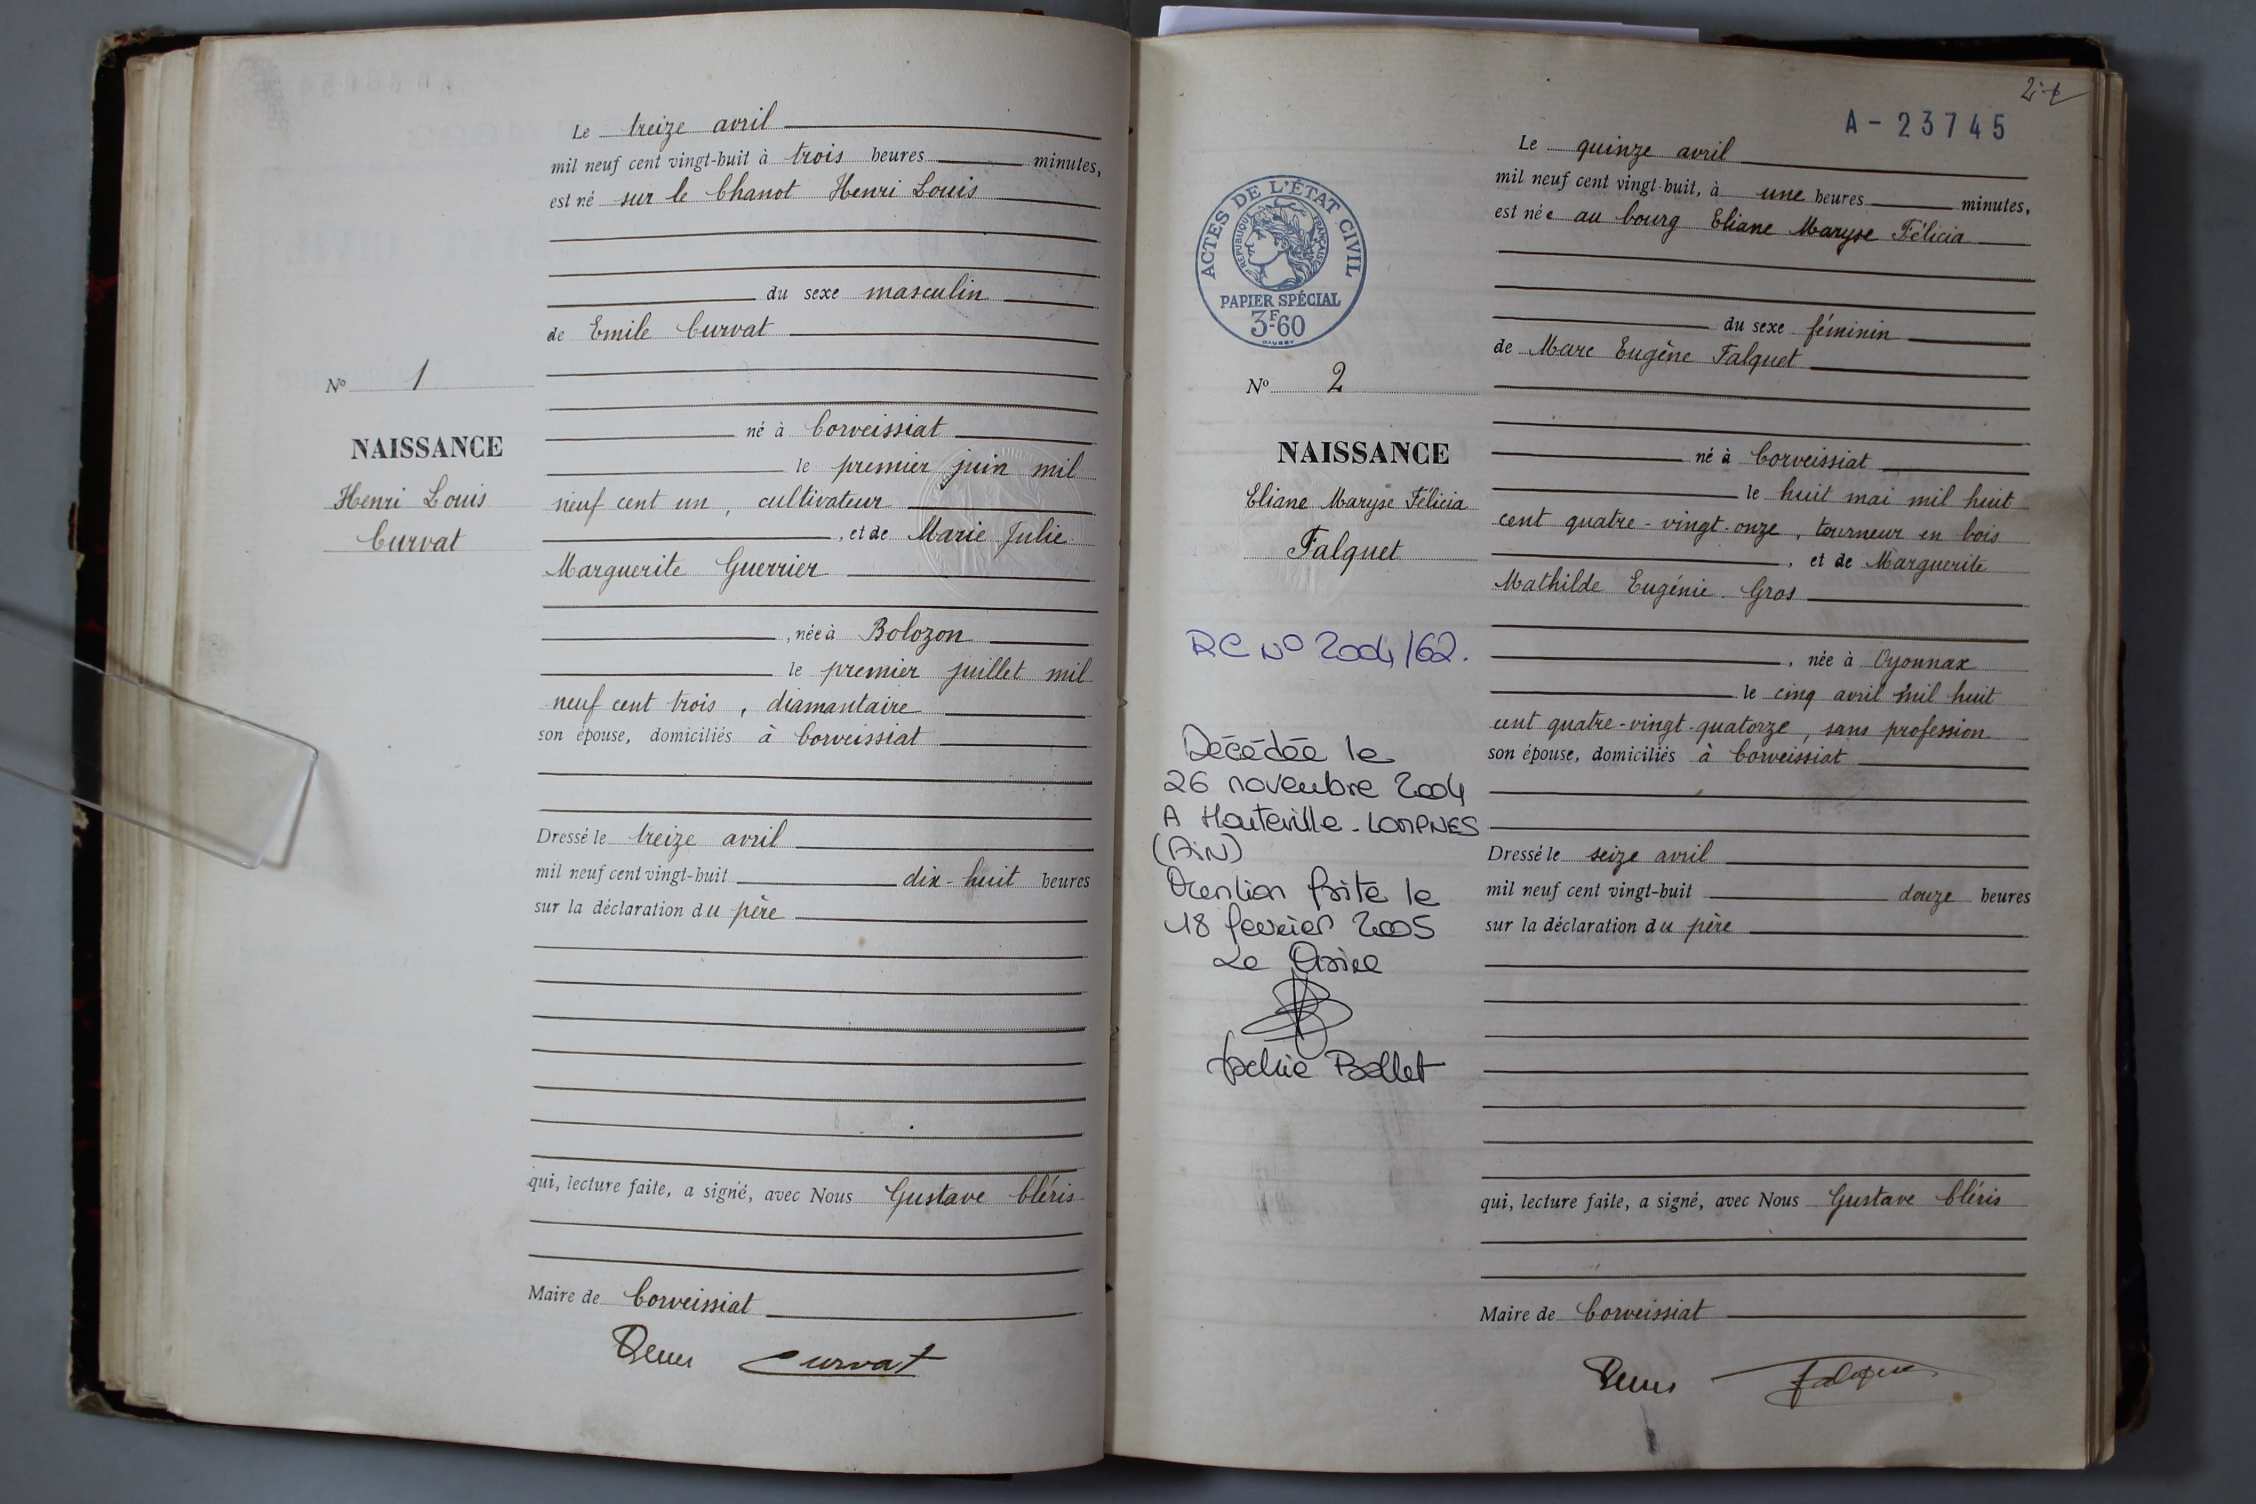 Le treize avril
mil neuf cent vingt-huit à trois heures minutes,
est né sur le Chanot Henri Louis
du sexe masculin
de Emile Curvat
né à Corveissiat
le premier juin mil
neuf cent un, cultivateur
, et de Marie Julie
Marguerite Guerrier
, née à Bolozon
le premier juillet mil
neuf cent trois, diamantaire
son épouse, domiciliés à Corveissiat
Dressé le treize avril
mil neuf cent vingt-huit dix-huit heures
sur la déclaration du père
qui, lecture faite, a signé, avec Nous Gustave Cléris
Maire de Corveissiat
Curvat
No 1
NAISSANCE
Henri Louis
Curvat
A-23745
Le quinze avril
mil neuf cent vingt-huit, à une heures minutes,
est née au bourg Eliane Maryse Félicia
du sexe féminin
de Marc Eugène Falquet
né à Corveissiat
le huit mai mil huit
cent quatre-vingt-onze, tourneur en bois
, et de Marguerite
Mathilde Eugénie Gros
, née à Oyonnax
le cinq avril mil huit
cent quatre-vingt-quatorze, sans profession
son épouse, domiciliés à Corveissiat
Dressé le seize avril
mil neuf cent vingt-huit douze heures
sur la déclaration du père
qui, lecture faite, a signé, avec Nous Gustave Cléris
Maire de Corveissiat
ACTES DE L'ÉTAT CIVIL
RÉPUBLIQUE FRANÇAISE
PAPIER SPÉCIAL
3F60
No 2
NAISSANCE
Eliane Maryse Félicia
Falquet
RC No 2004/62.
Décédée le
26 novembre 2004
A Hauteville-LOMPNES
(AIN)
Mention faite le
18 février 2005
Le Maire